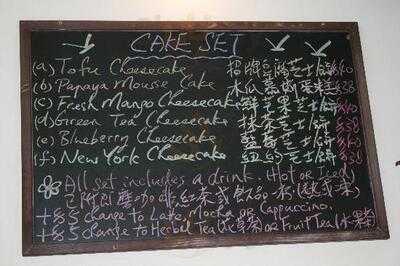 CAKE SET
(a) Tofu Cheesecake 招牌豆腐芝士餅
(b) Papaya Mousse Cake 木瓜慕絲蛋糕 $38
(c) Fresh Mango Cheesecake 鮮芒果芝士餅 $40
(d) Green Tea Cheesecake 抹茶芝士餅 $38
(e) Blueberry Cheesecake 藍莓芝士餅 $38
(f) New York Cheesecake 紐約芝士餅 $38
All set includes a drink. (Hot or Iced)
咖啡 紅茶或飲品
+$5 change to Latte, Mocha or Cappuccino.
+$5 change to Herbal Tea or Fruit Tea